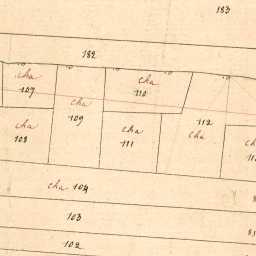 183
182
cha
107
cha
109
cha
110
108
cha
cha
111
112
cha
cha 104
103
102